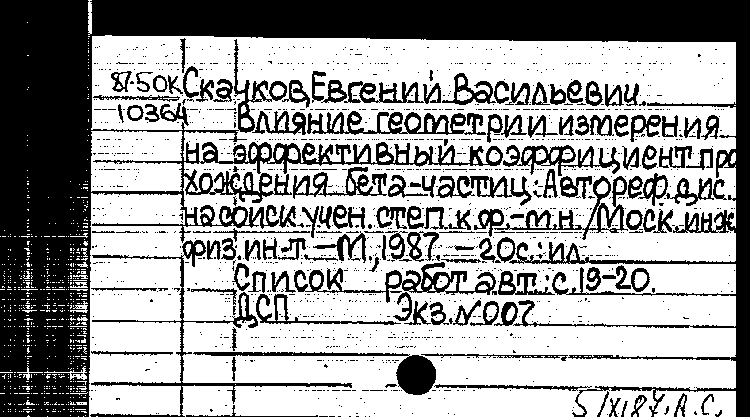 87-50К Скачков, Евгений Васильевич.
10364 Влияние геометрии измерения
на эффективный коэффициент про
хождения бета-частиц: Автореф. дис.
на соиск. учен. степ. к.ф.-т.н. / Моск. инж.
физ. ин-т. - М., 1987. - 20с.: ил.
Список работ авт.: с. 19-20.
ДСП. Экз. №007.
5/XI87. А.С.